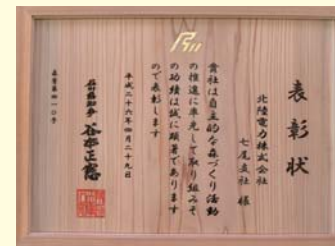 表彰状
北陸電力株式会社
七尾支社 様
貴社は自主的な森づくり活動
の推進に率先して取り組みそ
の功績は誠に顕著であります
ので表彰します
平成二十六年四月二十九日
石川県知事 谷本正憲